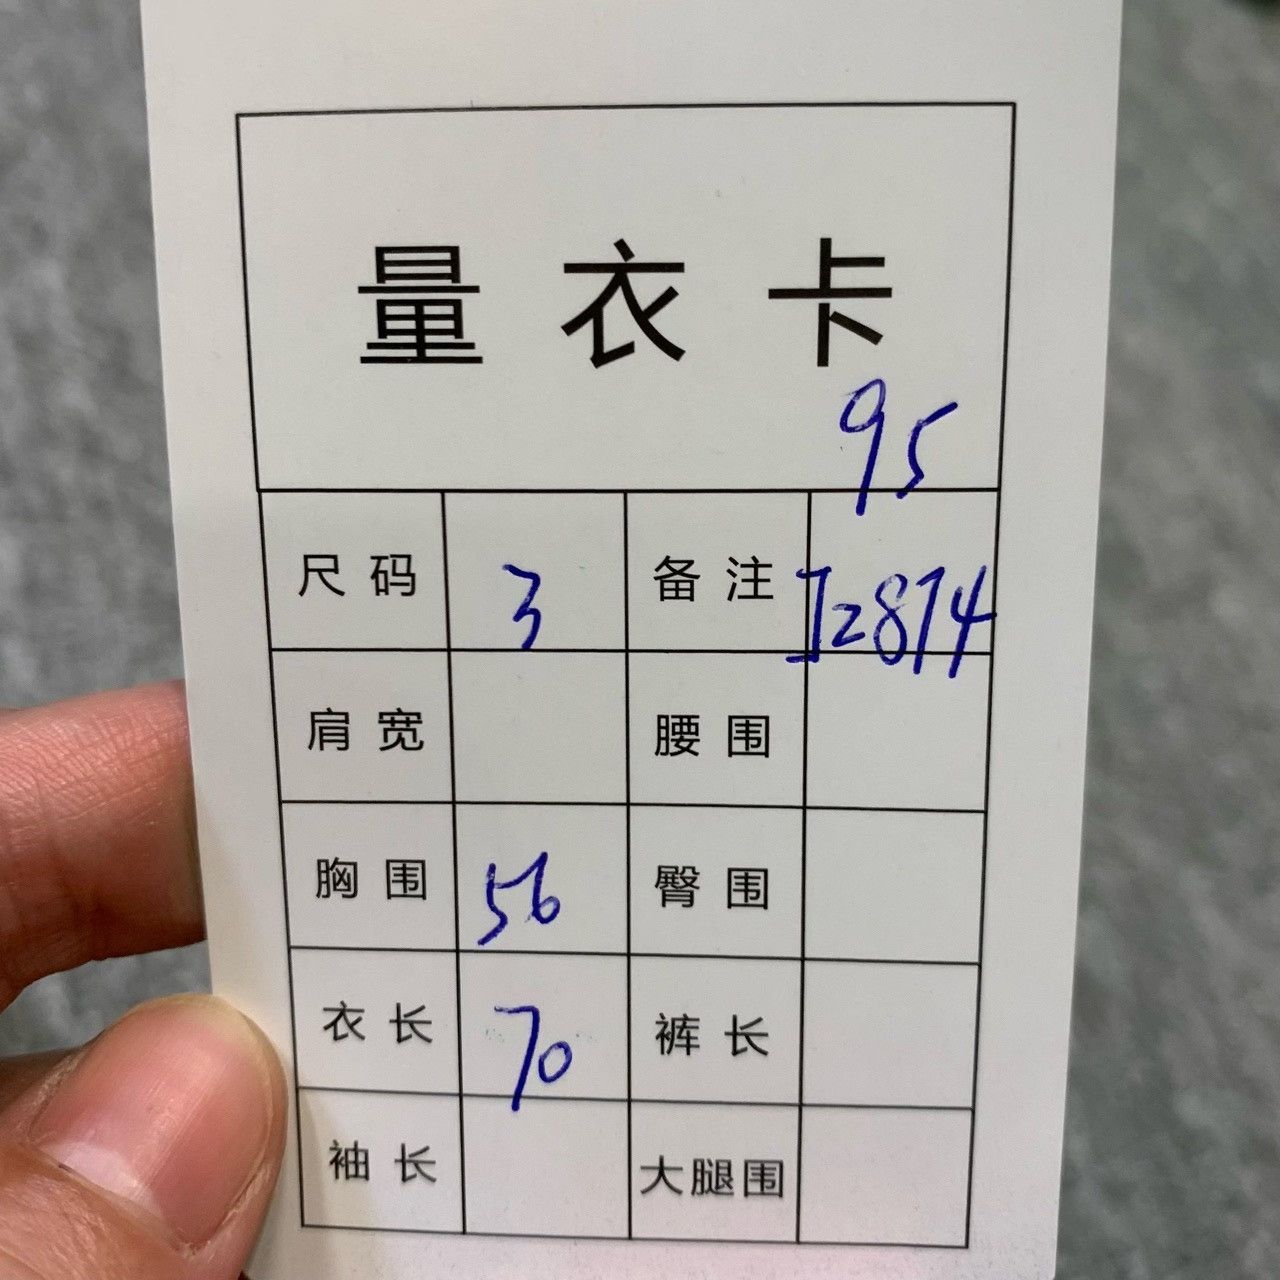 量衣卡
95
尺码 3 备注 J2874
肩宽 腰围
胸围 56 臀围
衣长 70 裤长
袖长 大腿围